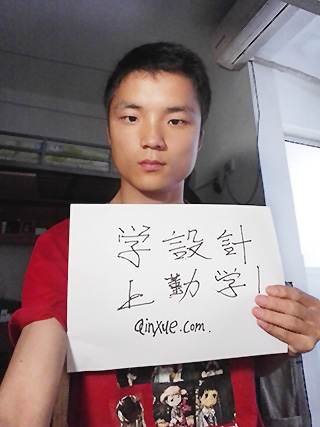 学設計
上勤学!
Qinxue.com.